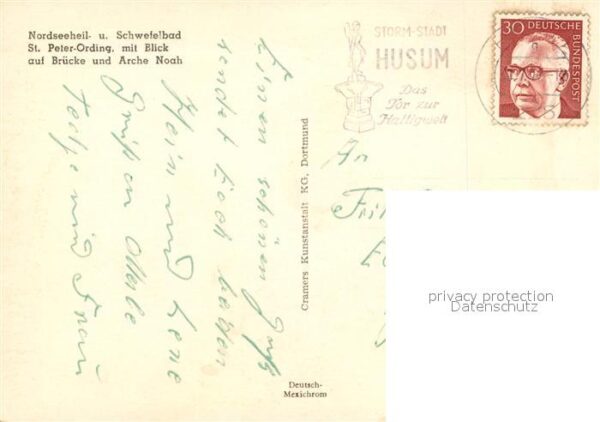 Nordseeheil- u. Schwefelbad
St. Peter-Ording, mit Blick
auf Brücke und Arche Noah
Einen schönen Gruß
sendet Euch beiden
Hein und Lene
Grüßen
und Frau
Cramers Kunstanstalt KG, Dortmund
Deutsch-
Mexichrom
STORM-STADT
HUSUM
Das
Tor zur
Halligwelt
30 DEUTSCHE
BUNDESPOST
An
privacy protection
Datenschutz